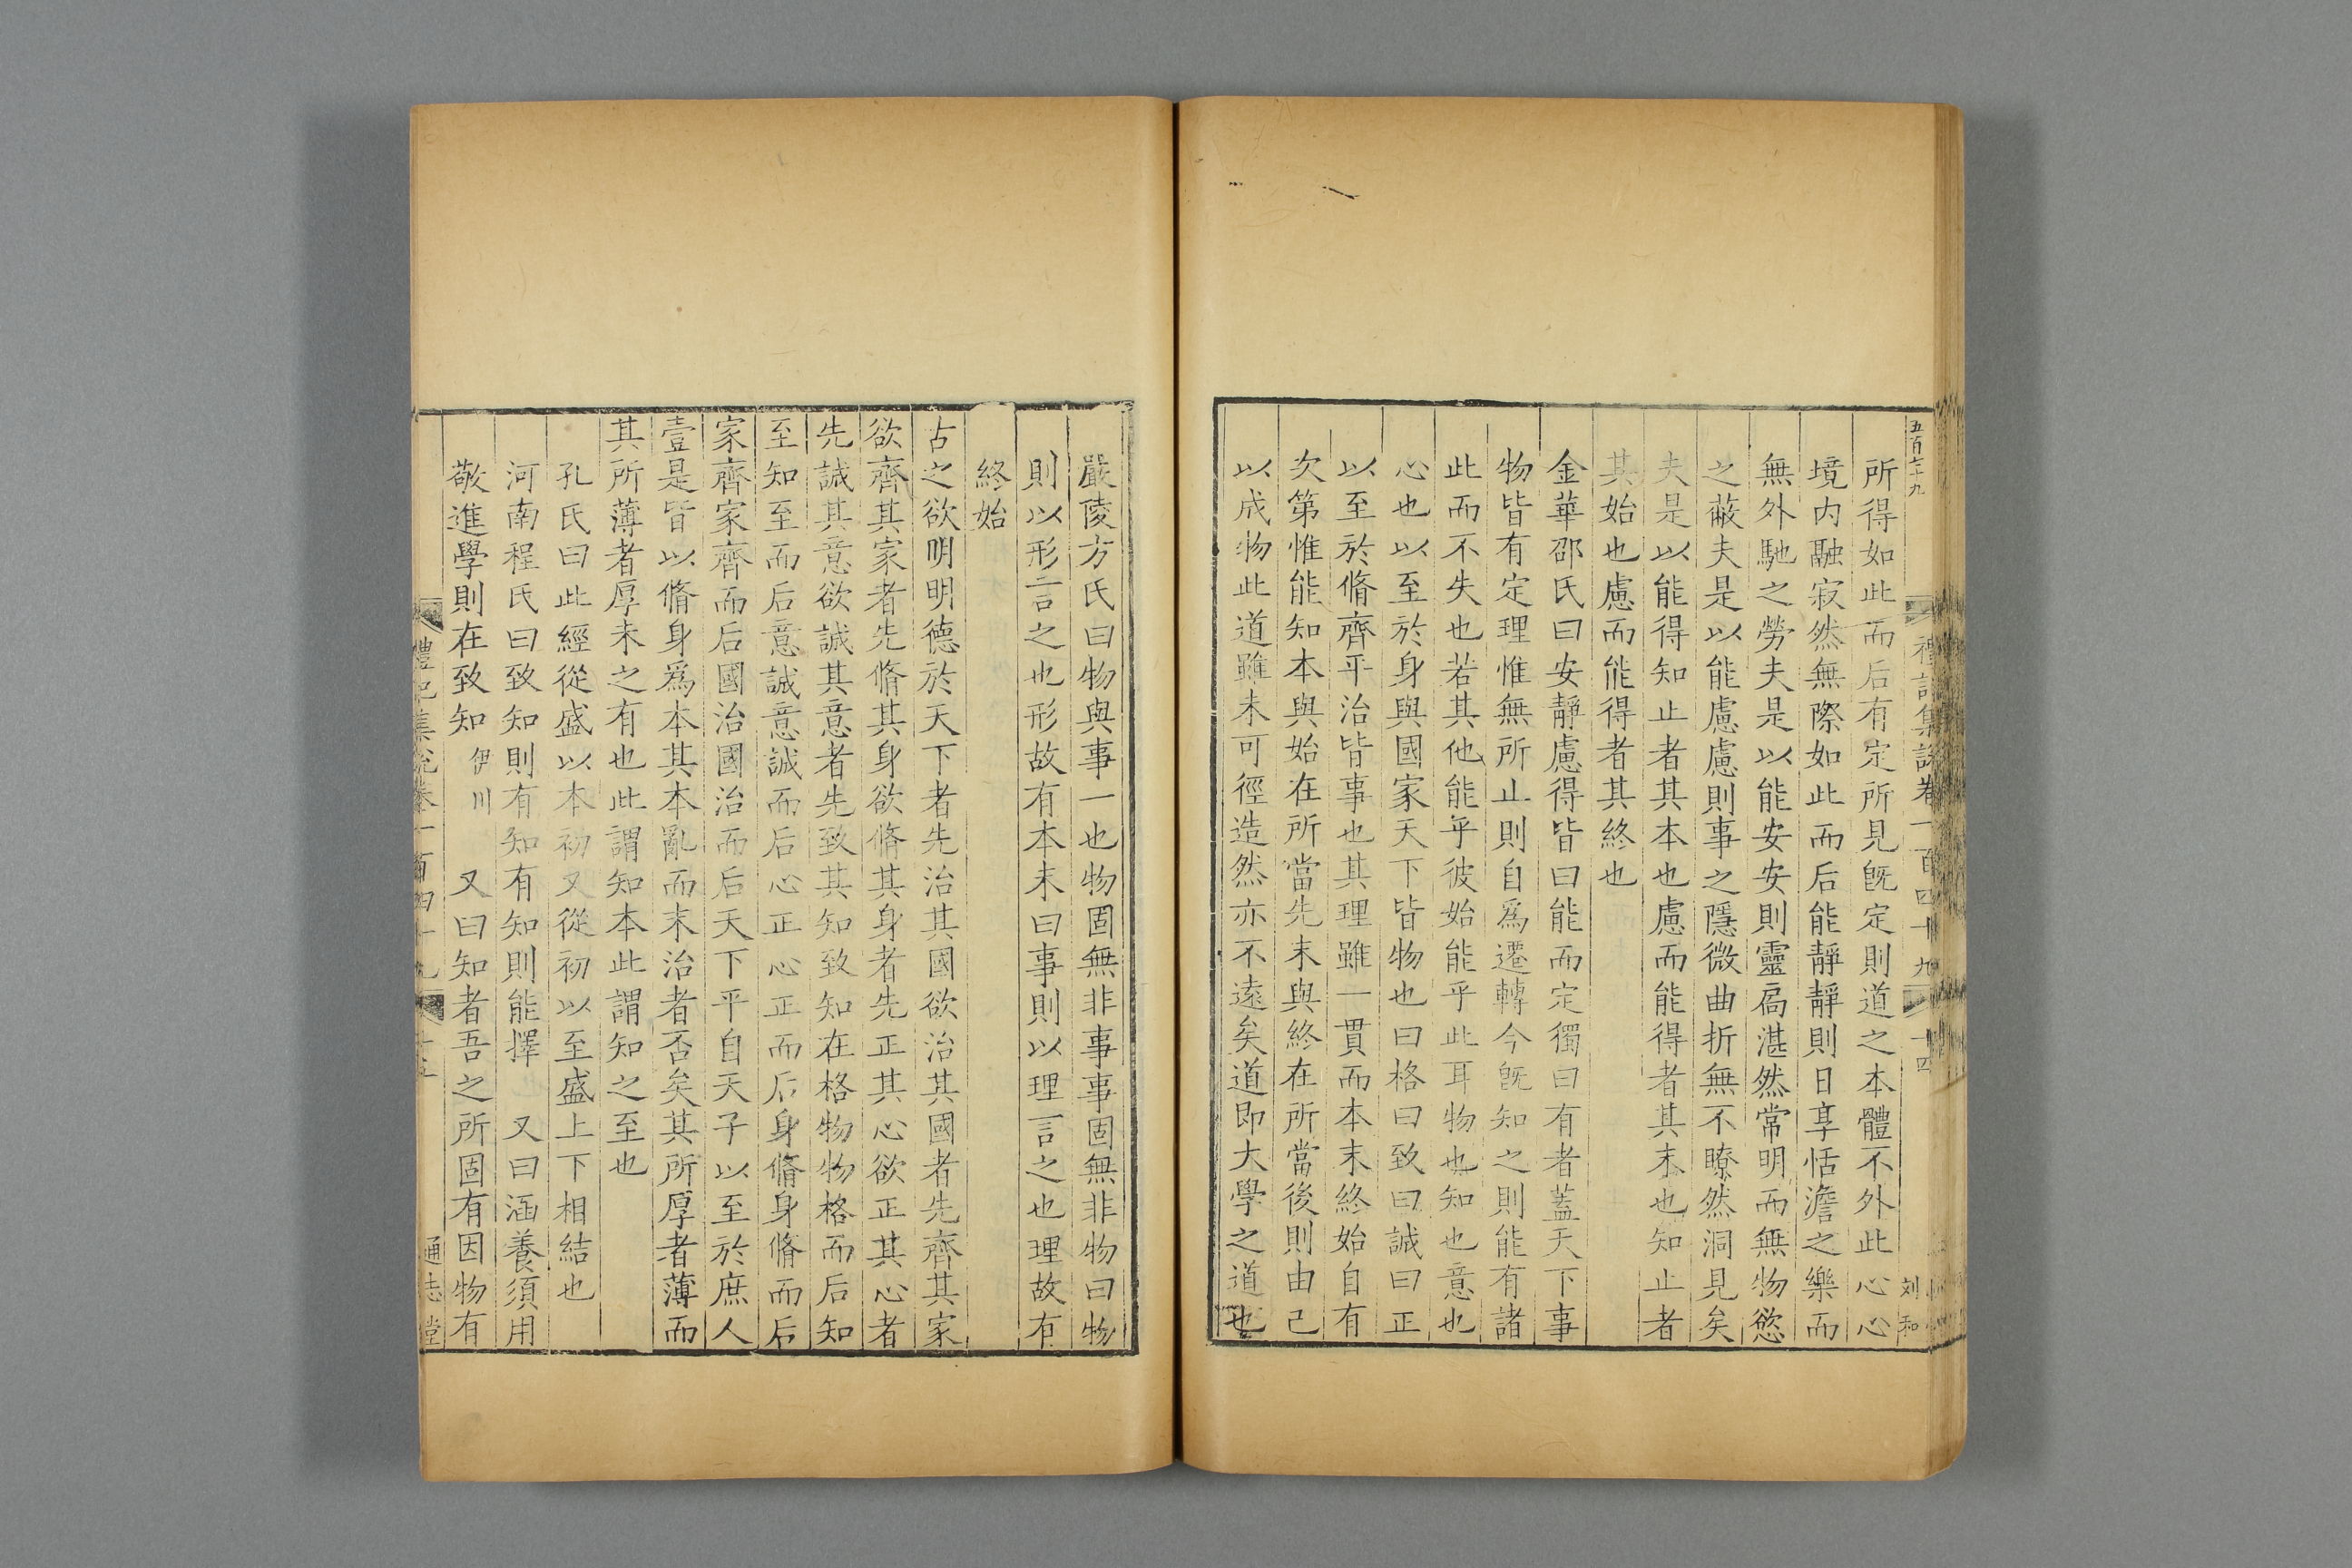 五百七十九
禮記集說卷一百四十九
十四
刘和
所得如此而后有定所見旣定則道之本體不外此心心
境内融寂然無際如此而后能靜靜則日享恬澹之樂而
無外馳之勞夫是以能安安則靈扃湛然常明而無物慾
之蔽夫是以能慮慮則事之隱微曲折無不瞭然洞見矣
夫是以能得知止者其本也慮而能得者其末也知止者
其始也慮而能得者其終也
金華邵氏曰安靜慮得皆曰能而定獨曰有者蓋天下事
物皆有定理惟無所止則自爲遷轉今旣知之則能有諸
此而不失也若其他能乎彼始能乎此耳物也知也意也
心也以至於身與國家天下皆物也曰格曰致曰誠曰正
以至於脩齊平治皆事也其理雖一貫而本末終始自有
次第惟能知本與始在所當先末與終在所當後則由己
以成物此道雖未可徑造然亦不遠矣道即大學之道也
嚴陵方氏曰物與事一也物固無非事事固無非物曰物
則以形言之也形故有本末曰事則以理言之也理故有
終始
古之欲明明德於天下者先治其國欲治其國者先齊其家
欲齊其家者先脩其身欲脩其身者先正其心欲正其心者
先誠其意欲誠其意者先致其知致知在格物物格而后知
至知至而后意誠意誠而后心正心正而后身脩身脩而后
家齊家齊而后國治國治而后天下平自天子以至於庶人
壹是皆以脩身爲本其本亂而末治者否矣其所厚者薄而
其所薄者厚未之有也此謂知本此謂知之至也
孔氏曰此經從盛以本初又從初以至盛上下相結也
河南程氏曰致知則有知有知則能擇 又曰涵養須用
敬進學則在致知 伊川 又曰知者吾之所固有因物有
禮記集說卷一百四十九
十五
通志堂